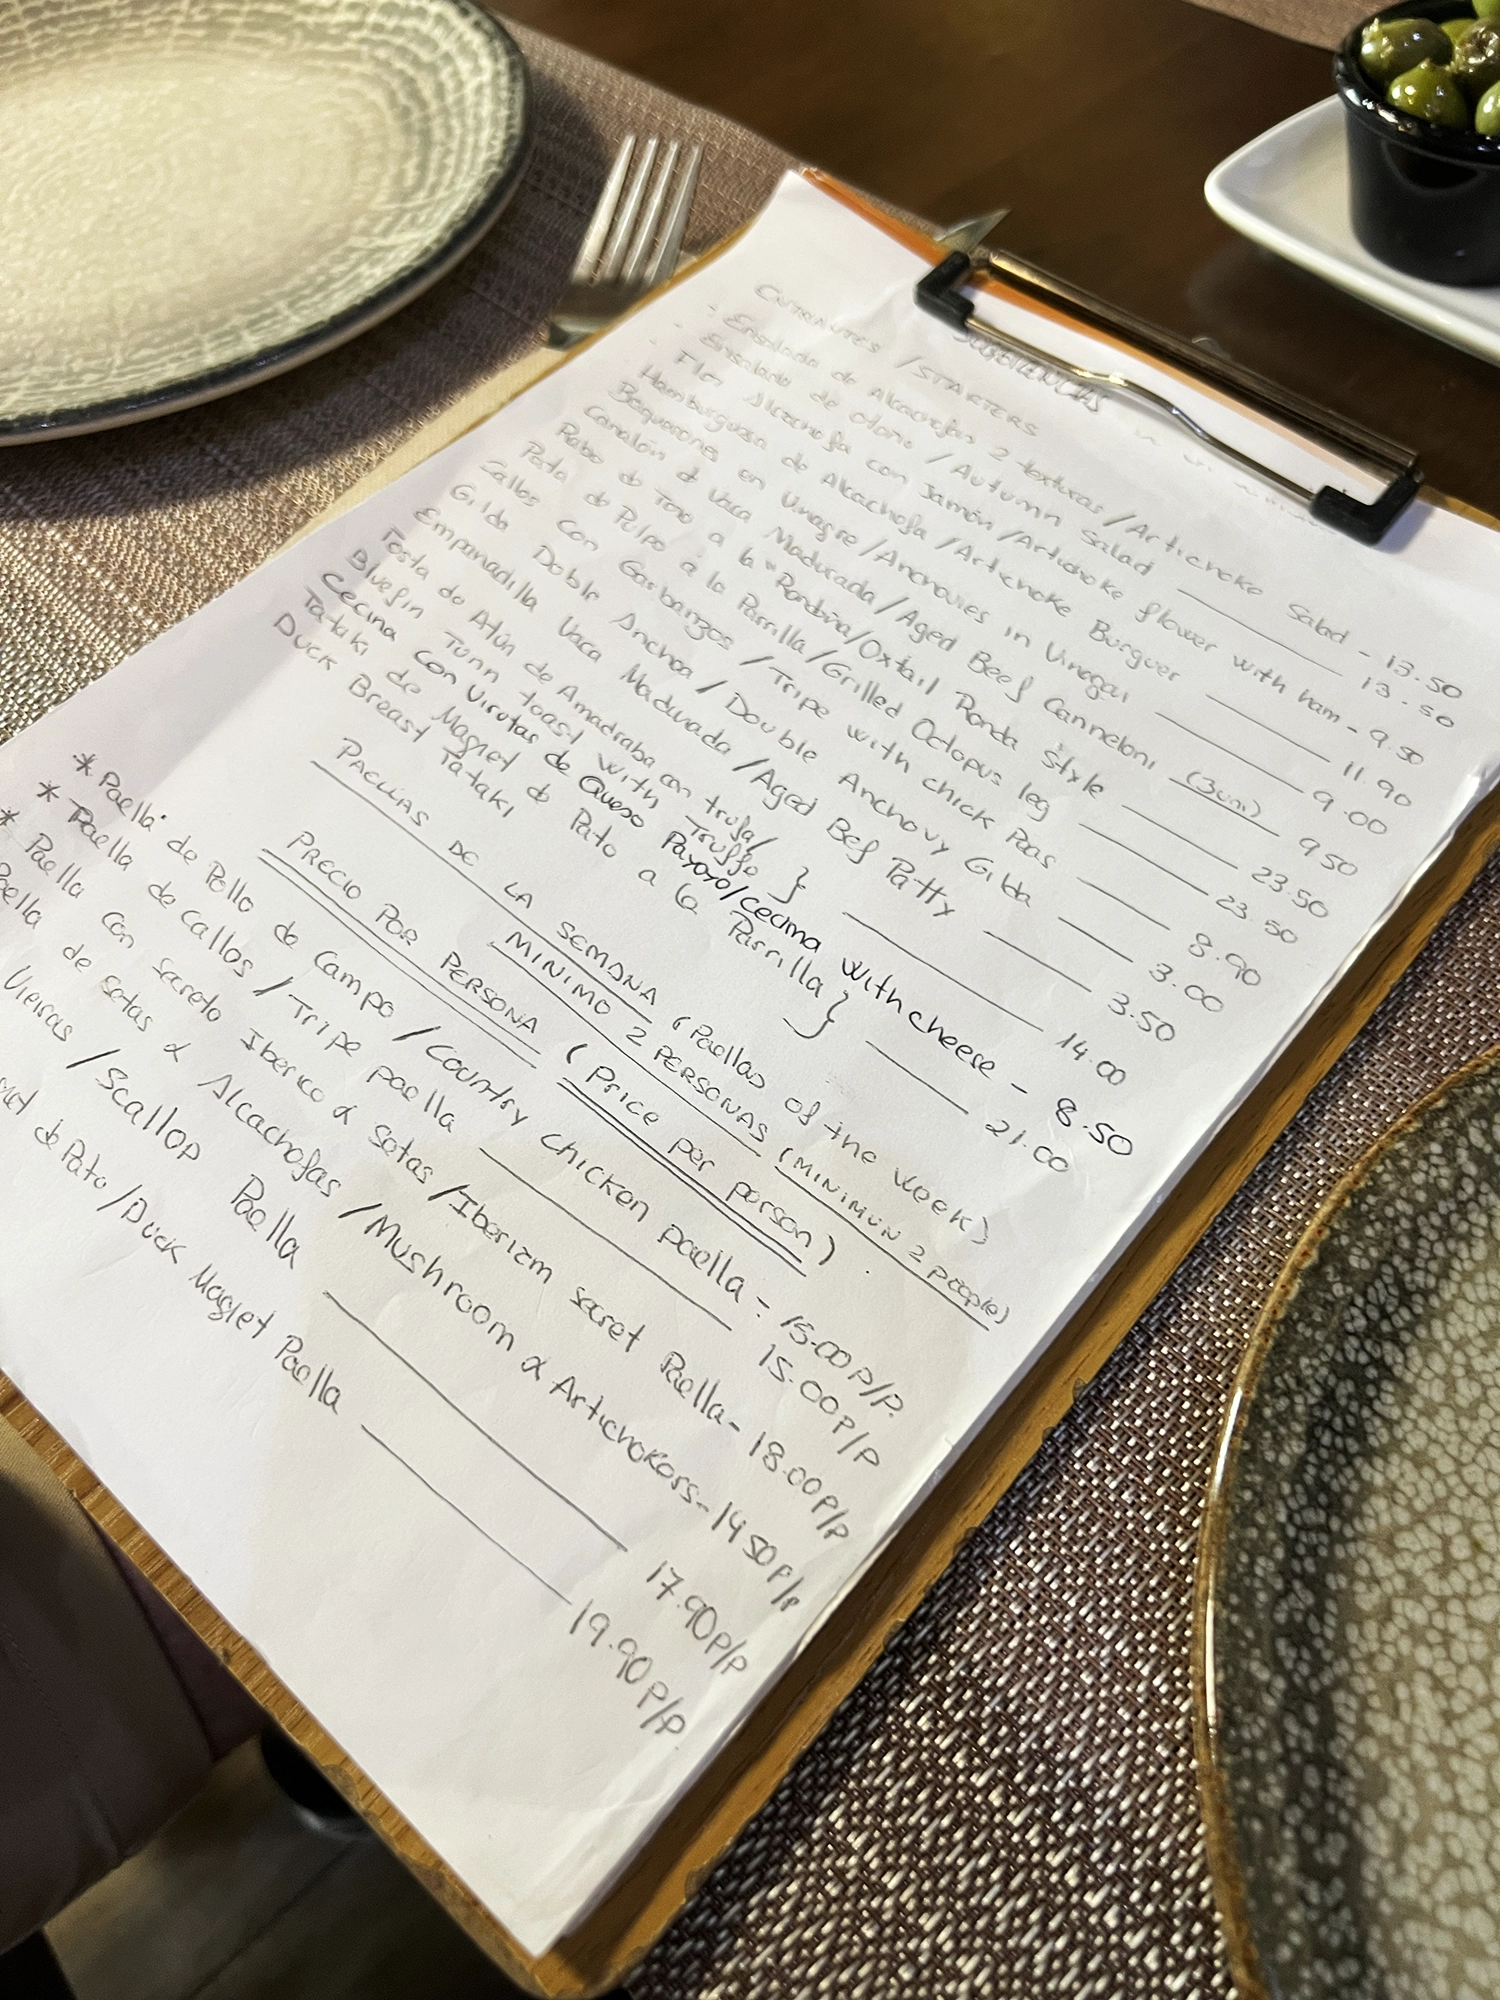 SUGERENCIAS
ENTRANTES / STARTERS
- Ensalada de Alcachofas 2 texturas / Artichoke Salad - 13.50
- Ensalada de otoño / Autumn Salad 13.50
- Flor Alcachofa con Jamón / Artichoke flower with ham - 9.50
Hamburguesa de Alcachofa / Artichoke Burguer 11.90
Boquerones en Vinagre / Anchovies in Vinegar 9.00
Canalón de Vaca Madurada / Aged Beef Canneloni (3uni) 9.50
Rabo de Toro a la "Rondeña / Oxtail Ronda Style 23.50
Pata de Pulpo a la Parrilla / Grilled Octopus leg 23.50
Callos con Garbanzos / Tripe with chick Peas 8.90
Gilda Doble Anchoa / Double Anchovy Gilda 3.00
Empanadilla Vaca Madurada / Aged Bef Patty 3.50
Tosta de Atún de Amadraba con trufa /
Bluefin Tunn toast with Truffe } 14.00
Cecina con Virutas de Queso Payoyo / Cecina with cheese - 8.50
Tataki de Magret de Pato a la Parrilla }
Duck Breast Tataki 21.00
PAELLAS DE LA SEMANA (Paellas of the week)
MINIMO 2 PERSONAS (MINIMUN 2 people)
PRECIO POR PERSONA (Price per person).
* Paella de Pollo de Campo / Country Chicken paella - 15.00P/P.
* Paella de Callos / Tripe paella 15.00P/P
* Paella con Secreto Iberico & setas / Iberian secret Paella - 18.00P/P
Paella de setas & Alcachofas / Mushroom & Artichokers - 14.50P/P
Vieiras / Scallop Paella 17.90P/P
de Pato / Duck Magret Paella 19.90P/P